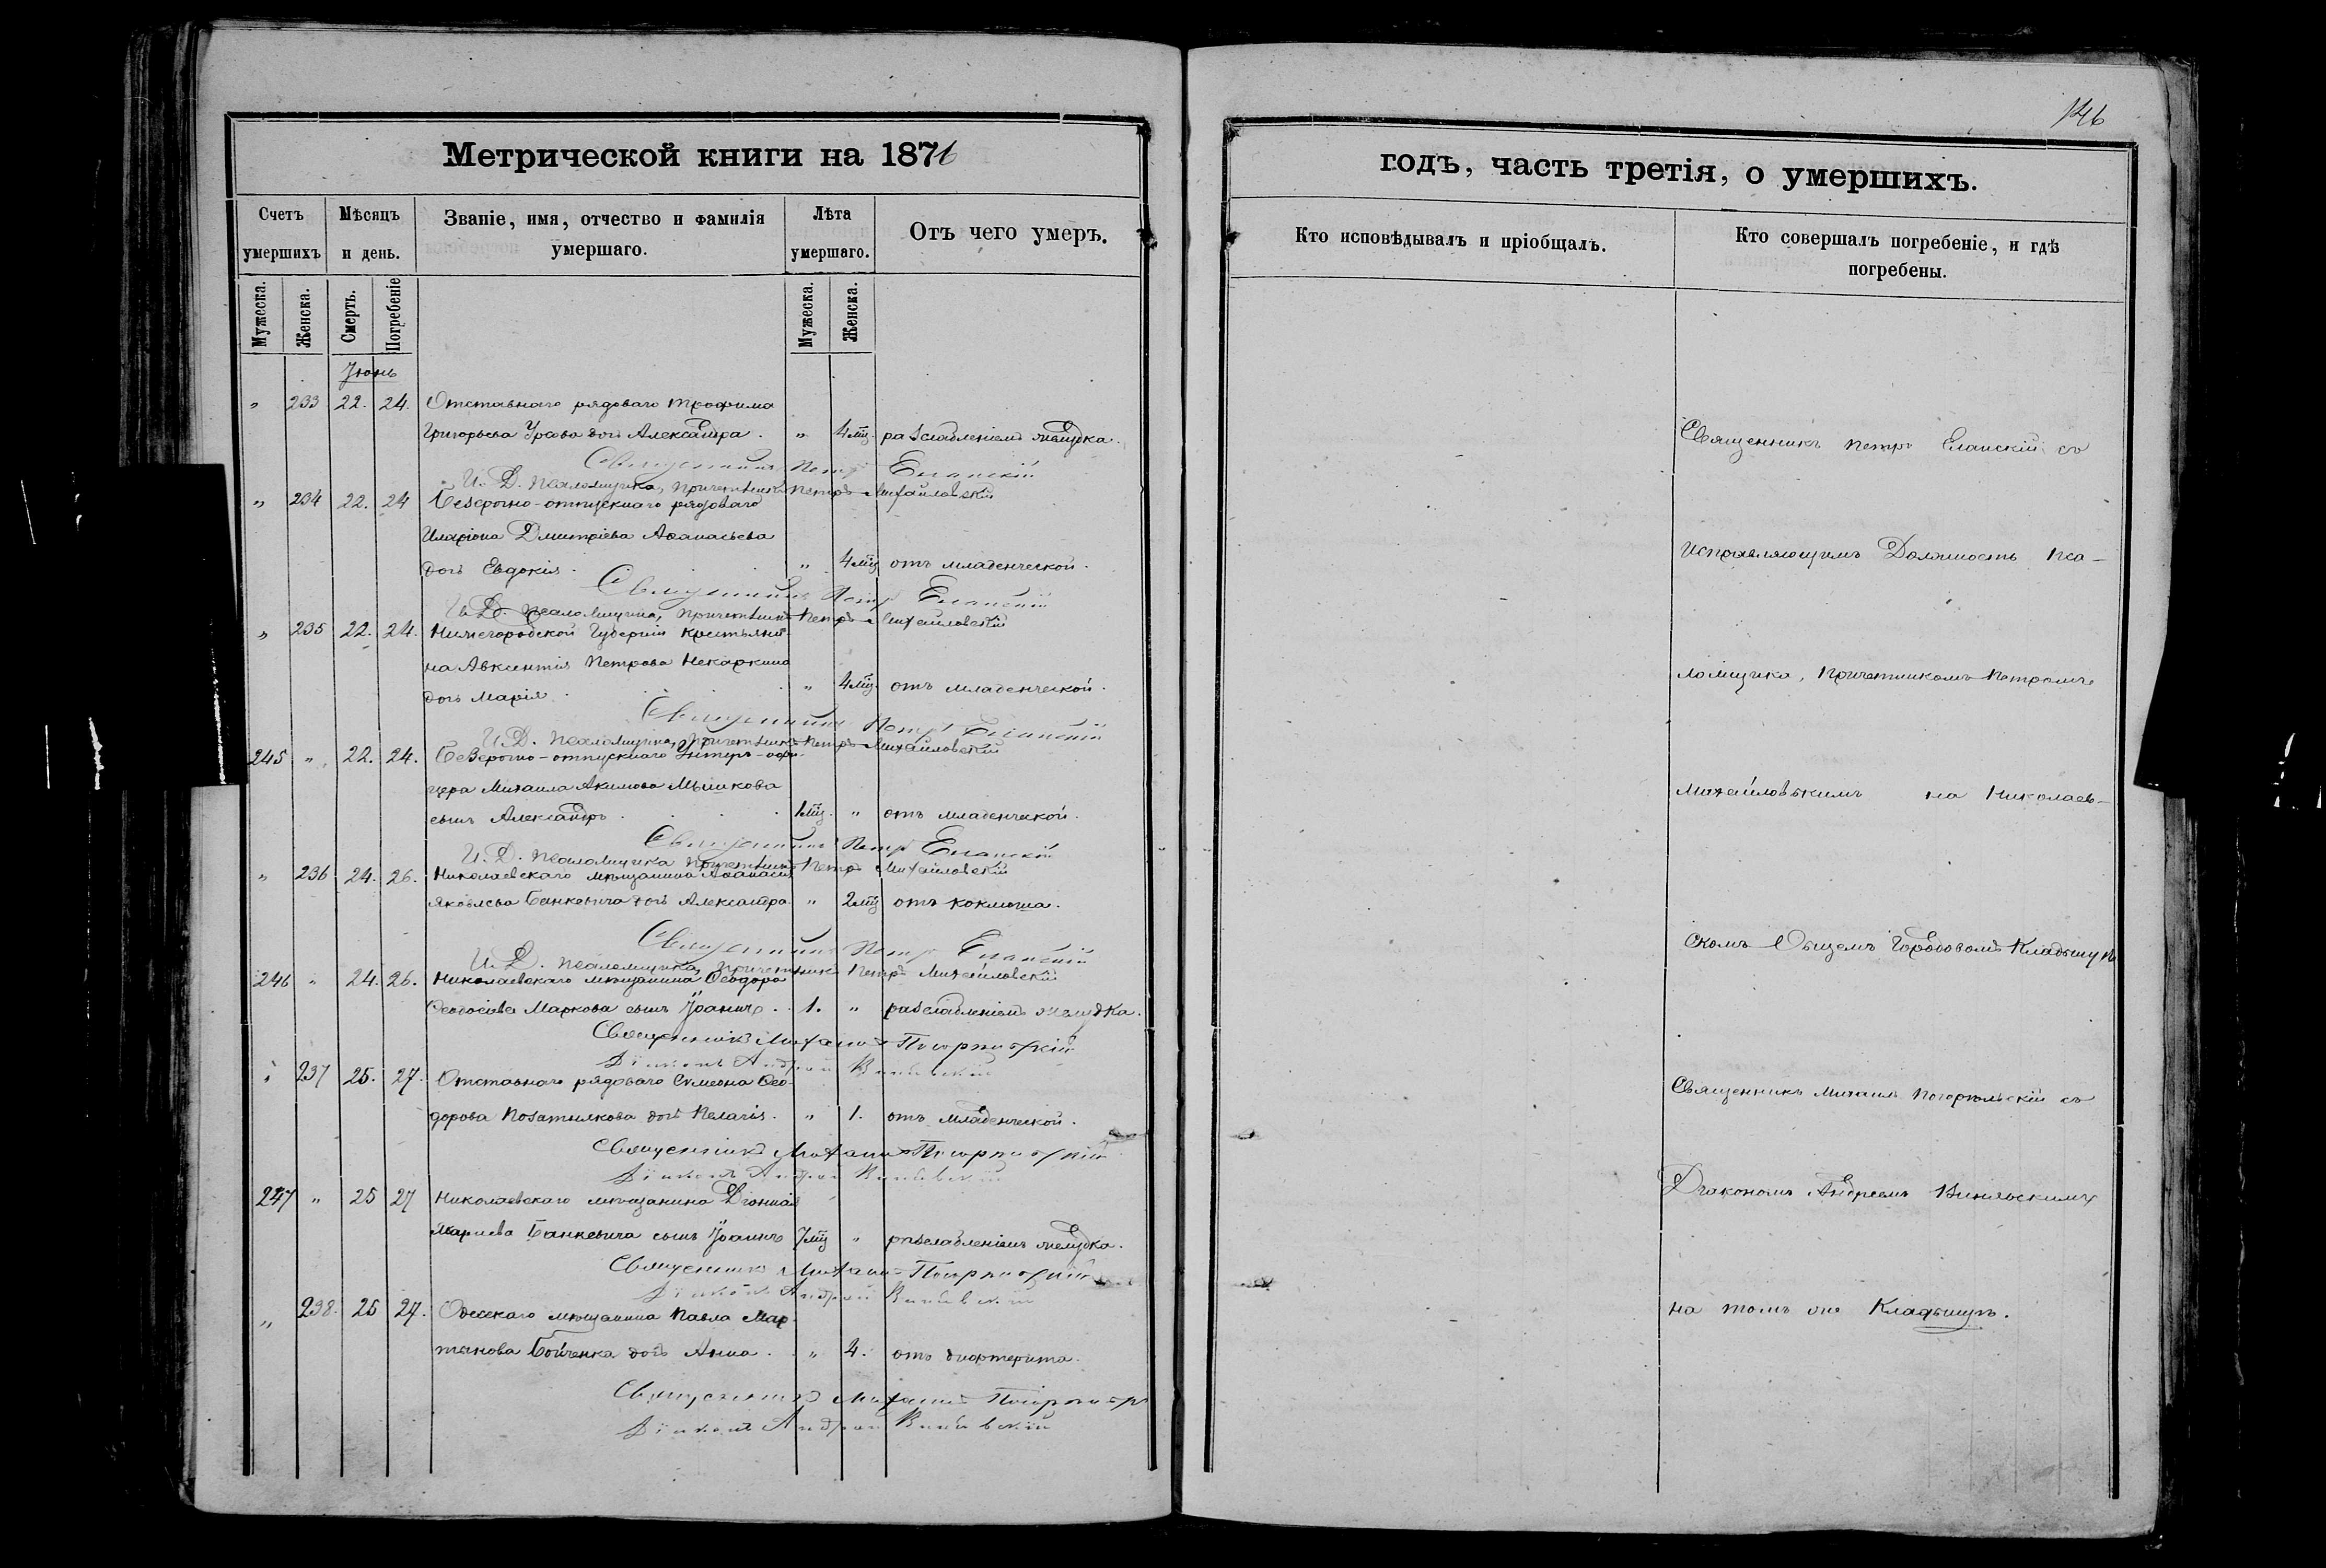 146
Метрической книги на 1876
годъ, часть третія, о умершихъ.
Счетъ умершихъ
Мѣсяцъ и день.
Званіе, имя, отчество и фамилія умершаго.
Лѣта умершаго.
Отъ чего умеръ.
Кто исповѣдывалъ и пріобщалъ.
Кто совершалъ погребеніе, и гдѣ погребены.
Мужеска.
Женска.
Смерть.
Погребеніе
Мужеска.
Женска.
Іюнь
" 233 22. 24. Отставнаго рядоваго Трофима
Григорьева дочь Александра. " 4 мц. разслабленіемъ желудка.
Священникъ Петръ Еланскій
И. Д. Псаломщика, Причетникъ Петръ Михайловскій
" 234 22. 24 Безсрочно-отпускнаго рядоваго
Иларіона Дмитріева Аѳанасьева
дочь Евдокія. " 4 мц отъ младенческой.
Священникъ Петръ Еланскій
И. Д. Псаломщика, Причетникъ Петръ Михайловскій
" 235 22. 24. Нижегородской Губерніи крестьяни-
на Авксентія Петрова Некаркина
дочь Марія. " 4 мц. отъ младенческой.
Священникъ Петръ Еланскій
И. Д. Псаломщика, Причетникъ Петръ Михайловскій
245 " 22. 24. Безсрочно-отпускнаго Унтеръ-офи-
цера Михаила Акимова Мышкова
сынъ Александръ 1 мц. " отъ младенческой.
Священникъ Петръ Еланскій
И. Д. Псаломщика Причетникъ Петръ Михайловскій
" 236 24. 26. Николаевскаго мѣщанина Аѳанасія
Яковлева Банкевича дочь Александра. " 2 мц отъ коклюша.
Священникъ Петръ Еланскій
И. Д. Псаломщика, Причетникъ Петръ Михайловскій
246 " 24. 26. Николаевскаго мѣщанина Ѳеодора
Ѳеодосіева Маркова сынъ Іоаннъ. 1. " разслабленіемъ желудка.
Священникъ Михаилъ Погорѣльскій
Діаконъ Андрей
" 237 25. 27. Отставнаго рядоваго Симеона Ѳео-
дорова дочь Пелагія. " 1. отъ младенческой.
Священникъ Михаилъ Погорѣльскій
Діаконъ Андрей
247 " 25 27 Николаевскаго мѣщанина Діонисія
Банкевича сынъ Іоаннъ 7 мц " разслабленіемъ желудка.
Священникъ Михаилъ Погорѣльскій
Діаконъ Андрей
" 238. 25 27. Одесскаго мѣщанина Павла Мар-
тынова Бойченка дочь Анна. " 4. отъ дифтерита.
Священникъ Михаилъ
Діаконъ Андрей
Священникъ Петръ Еланскій съ
исправляющимъ Должность Пса-
ломщика, Причетникомъ Петромъ
Михайловскимъ на Николаев-
скомъ Общемъ Городовомъ Кладбищѣ
Священникъ Михаилъ Погорѣльскій съ
Діакономъ Андреемъ
на томъ же Кладбищѣ.